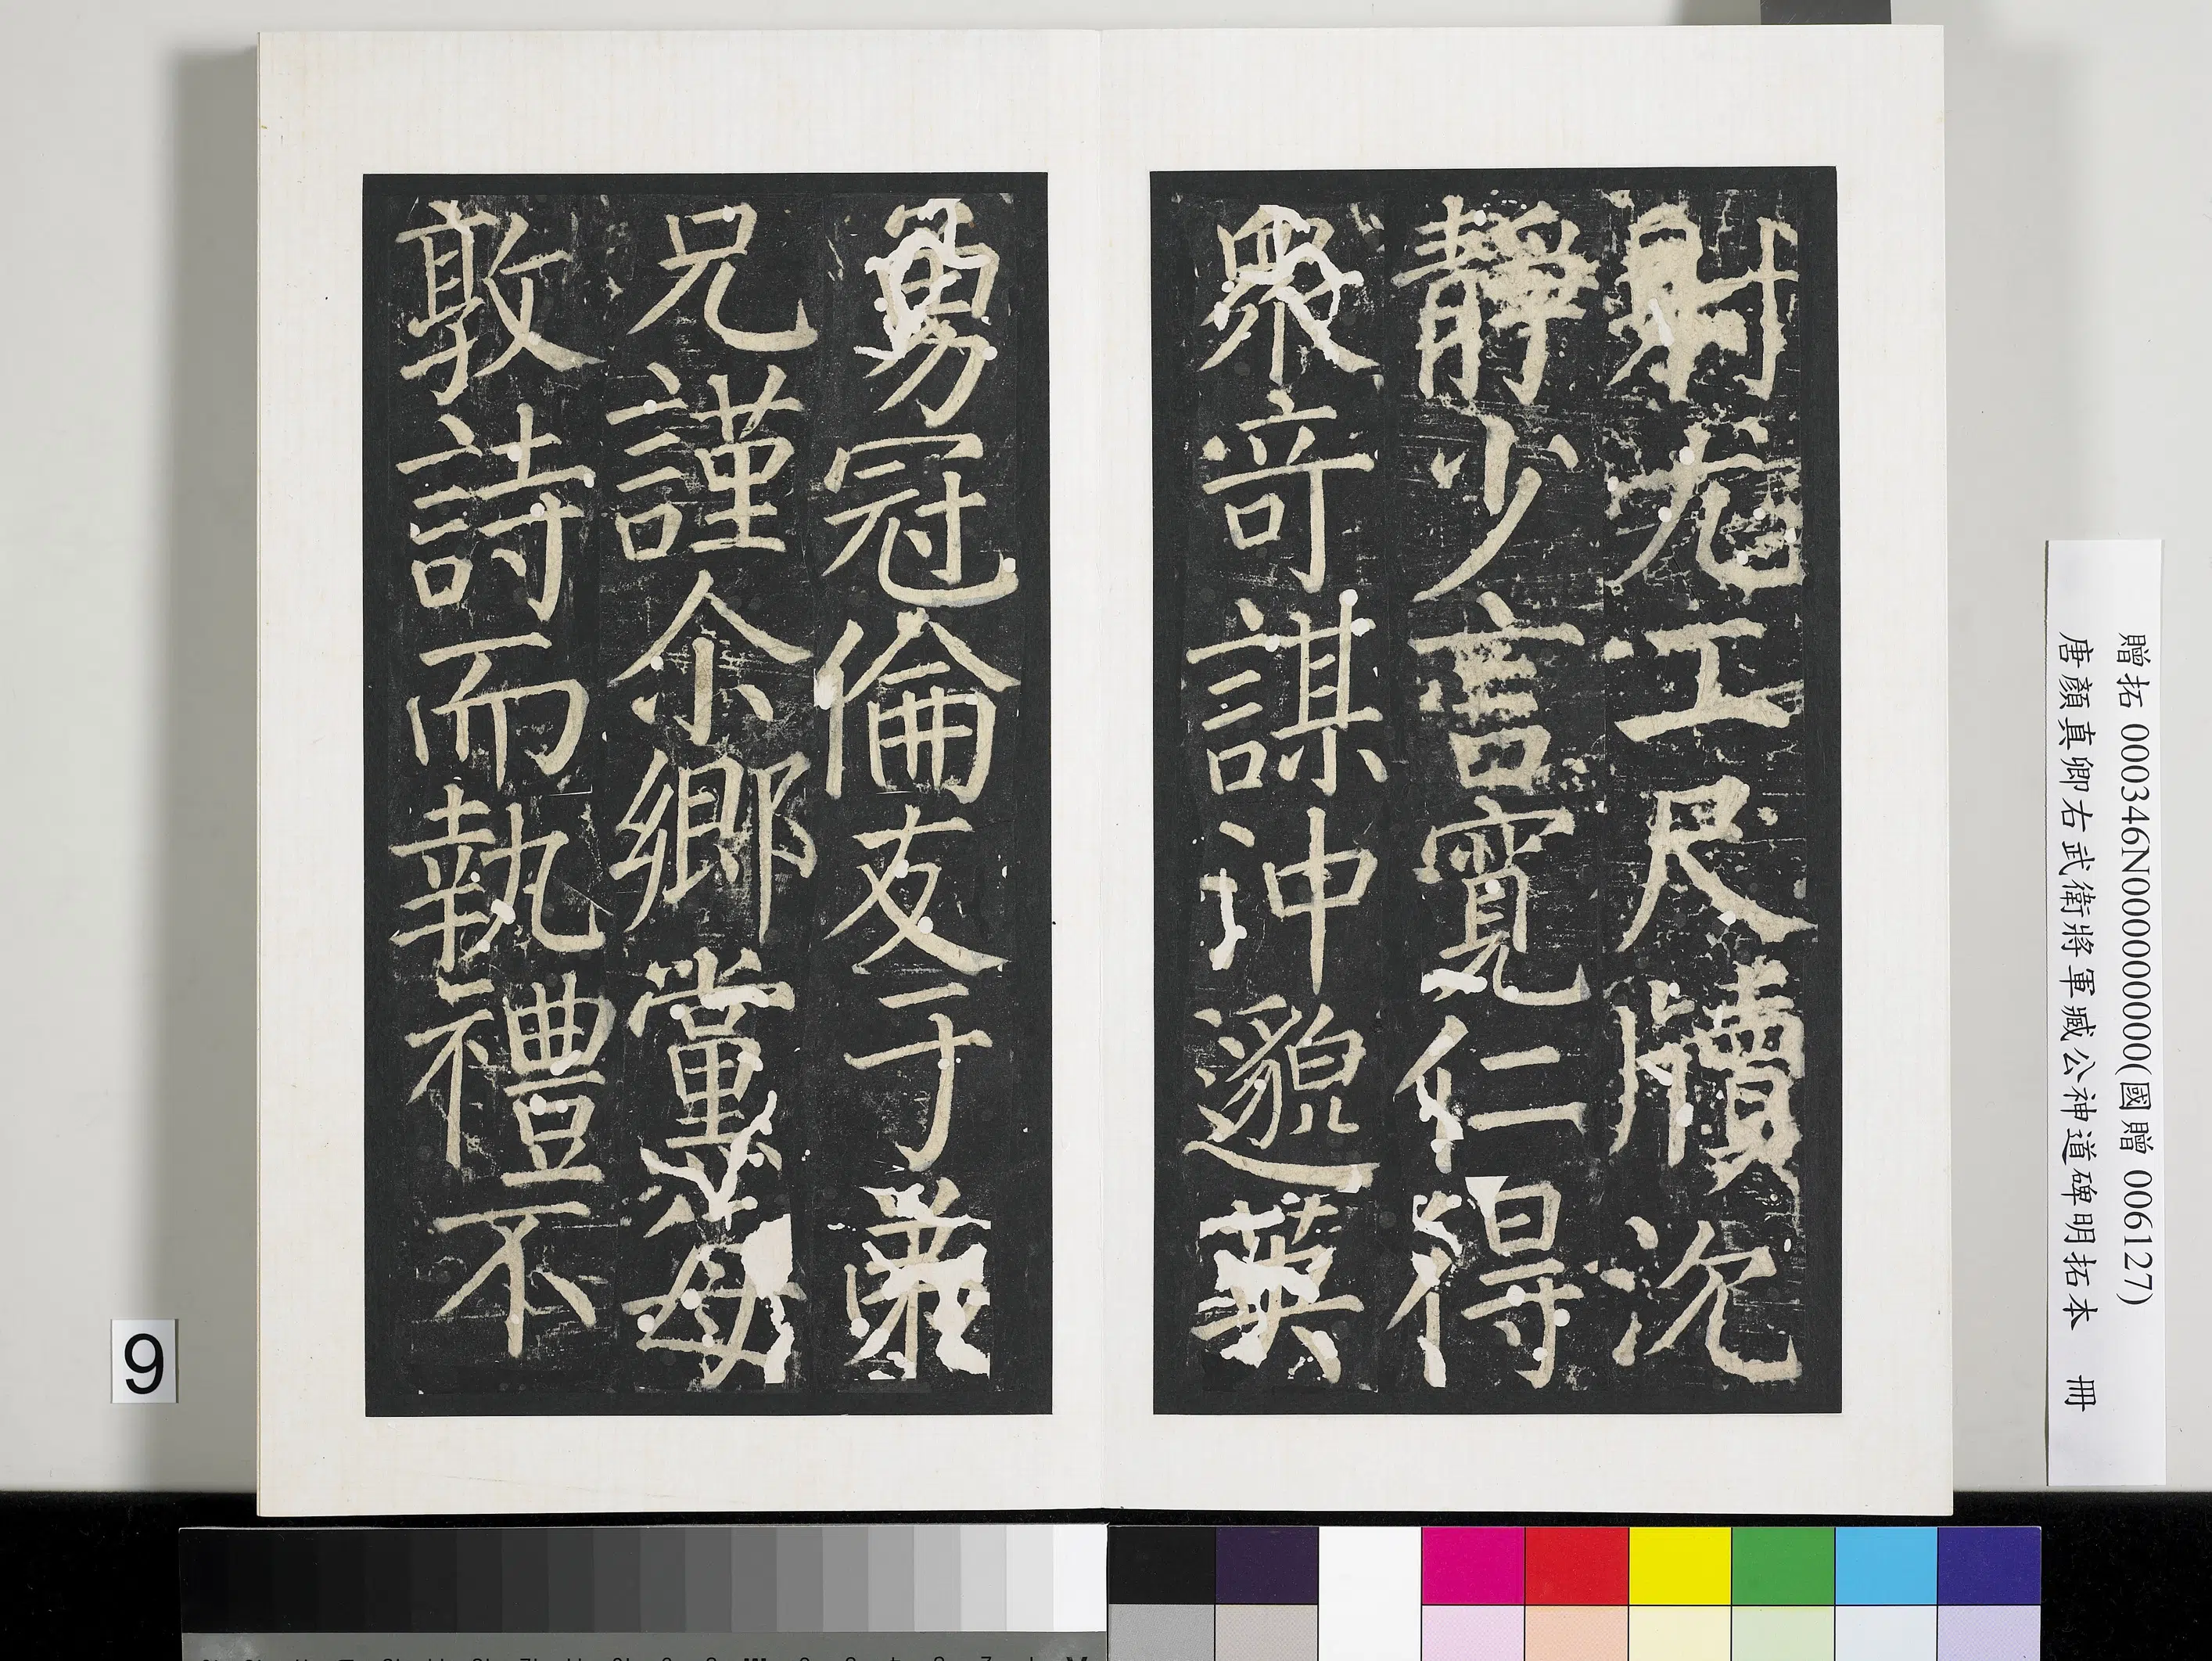 射尤工尺牘沈
靜少言寬仁得
眾奇謀沖邈英
勇冠倫友于弟
兄謹尒鄉黨每
敦詩而執禮不
贈拓 000346N000000000(國贈 006127)
唐顏真卿右武衛將軍臧公神道碑明拓本 冊
9